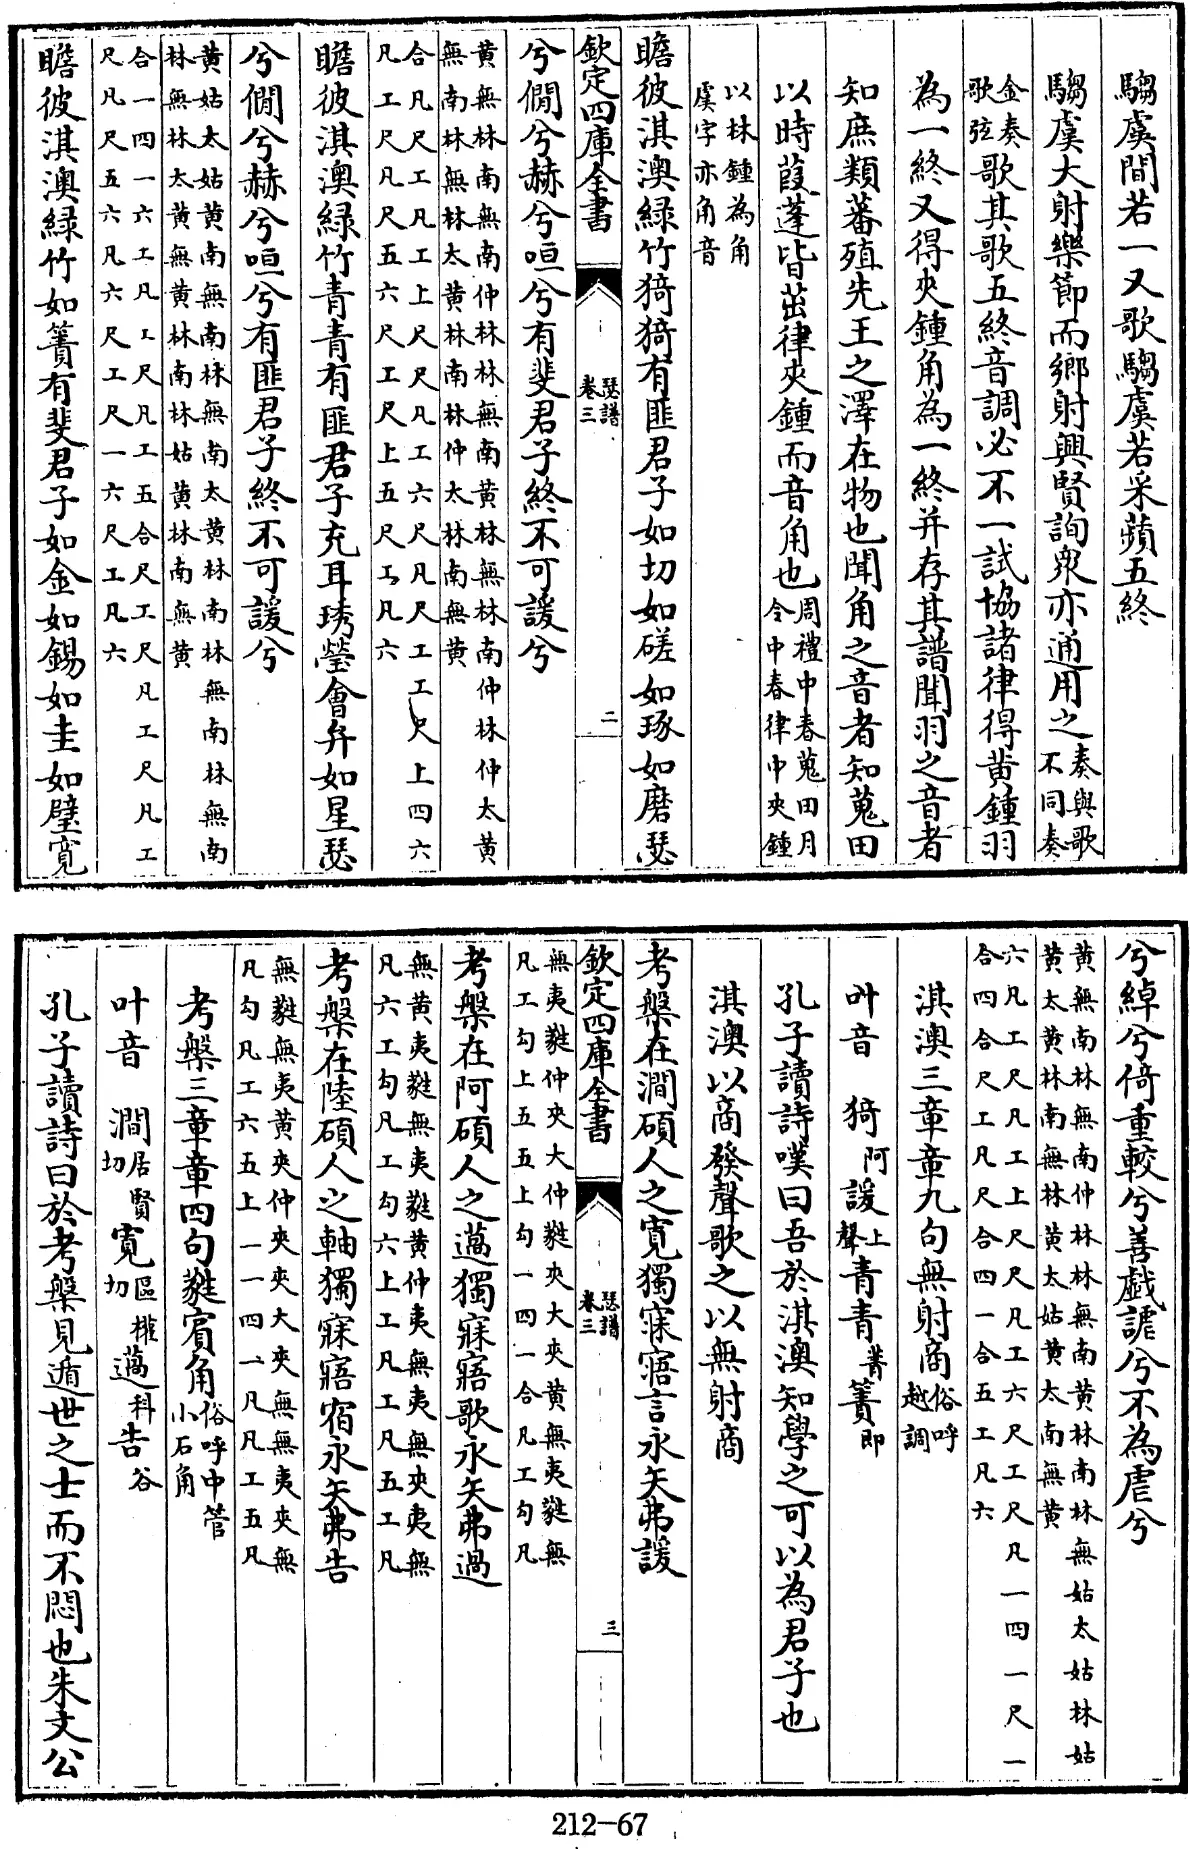 騶虞間若一又歌騶虞若采蘋五終
騶虞大射樂節而鄉射興賢詢衆亦通用之奏與歌不同奏
金奏歌弦歌其歌五終音調必不一試協諸律得黄鍾羽
為一終又得夾鍾角為一終并存其譜聞羽之音者
知庶類蕃殖先王之澤在物也聞角之音者知蒐田
以時葭蓬皆茁律夾鍾而音角也周禮中春蒐田月令中春律中夾鍾
以林鍾為角
虞字亦角音
瞻彼淇澳緑竹猗猗有匪君子如切如磋如琢如磨瑟
欽定四庫全書 瑟譜 卷三 二
兮僩兮赫兮咺兮有斐君子終不可諼兮
黄無林南無南仲林林無南黄林無林南仲林仲太黄
無南林無林太黄林南林仲太林南無黄
合凡尺工凡工上尺尺凡工六尺凡尺工工尺上四六
凡工尺凡尺五六尺工尺上五尺工凡六
瞻彼淇澳緑竹青青有匪君子充耳琇瑩會弁如星瑟
兮僩兮赫兮咺兮有匪君子終不可諼兮
黄姑太姑黄南無南林無南太黄林南林無南林無南
林無林太黄無黄林南林姑黄林南無黄
合一四一六工凡工尺凡工五合尺工尺凡工尺凡工
尺凡尺五六凡六尺工尺一六尺工凡六
瞻彼淇澳緑竹如簀有斐君子如金如錫如圭如璧寛
兮綽兮倚重較兮善戲謔兮不為虐兮
黄無南林無南仲林林無南黄林南林無姑太姑林姑
黄太黄林南無林黄太姑黄太南無黄
六凡工尺凡工上尺尺凡工六尺工尺凡一四一尺一
合四合尺工凡尺合四一合五工凡六
淇澳三章章九句無射商俗呼越調
叶音 猗阿 諼上聲 青青菁 簀即
孔子讀詩嘆曰吾於淇澳知學之可以為君子也
淇澳以商發聲歌之以無射商
考槃在澗碩人之寛獨寐寤言永矢弗諼
欽定四庫全書 瑟譜 卷三 三
無夷蕤仲夾大仲蕤夾大夾黄無夷蕤無
凡工勾上五五上勾一四一合凡工勾凡
考槃在阿碩人之薖獨寐寤歌永矢弗過
無黄夷蕤無夷蕤黄仲夷無夷無夾夷無
凡六工勾凡工勾六上工凡工凡五工凡
考槃在陸碩人之軸獨寐寤宿永矢弗告
無蕤無夷黄夾仲夾夾大夾無無夷夾無
凡勾凡工六五上一一四一凡凡工五凡
考槃三章章四句蕤賔角俗呼中管小石角
叶音 澗居賢切 寛區權切 薖科 告谷
孔子讀詩曰於考槃見遁世之士而不悶也朱文公
212-67